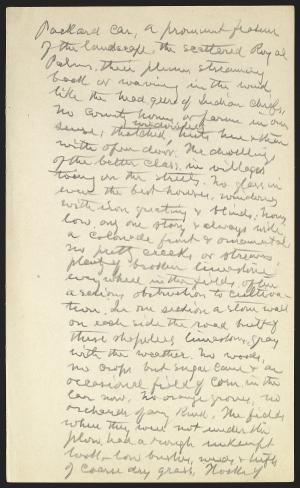 Packard car, a prominent feature
of the landscape, the scattered Royal
Palms, their plumes streaming
back or waving in the wind
like the head gear of Indian chiefs.
No country homes or farms in our
sense, thatched huts here & there
windowless
with open door. The dwelling
of the better class, in villages
on the streets. No glass in
even the best houses, windows
with iron grating & blinds, houses
low, only one story & always with
a colonade front & ornamental
no pretty creeks or streams
plenty of broken limestone
everywhere in the fields, often
a serious obstruction to cultiva-
tion. In one section a stone wall
on each side the road built of
these shapeless limestones, gray
with the weather. No woods,
no crops but sugar cane & an
occasional field of corn in the
ear now, no orange groves, no
orchards of any kind. The fields
where they were not under the
plow, had a rough unkempt
look – low bushes, weeds & tufts
of coarse dry grass. Flocks of